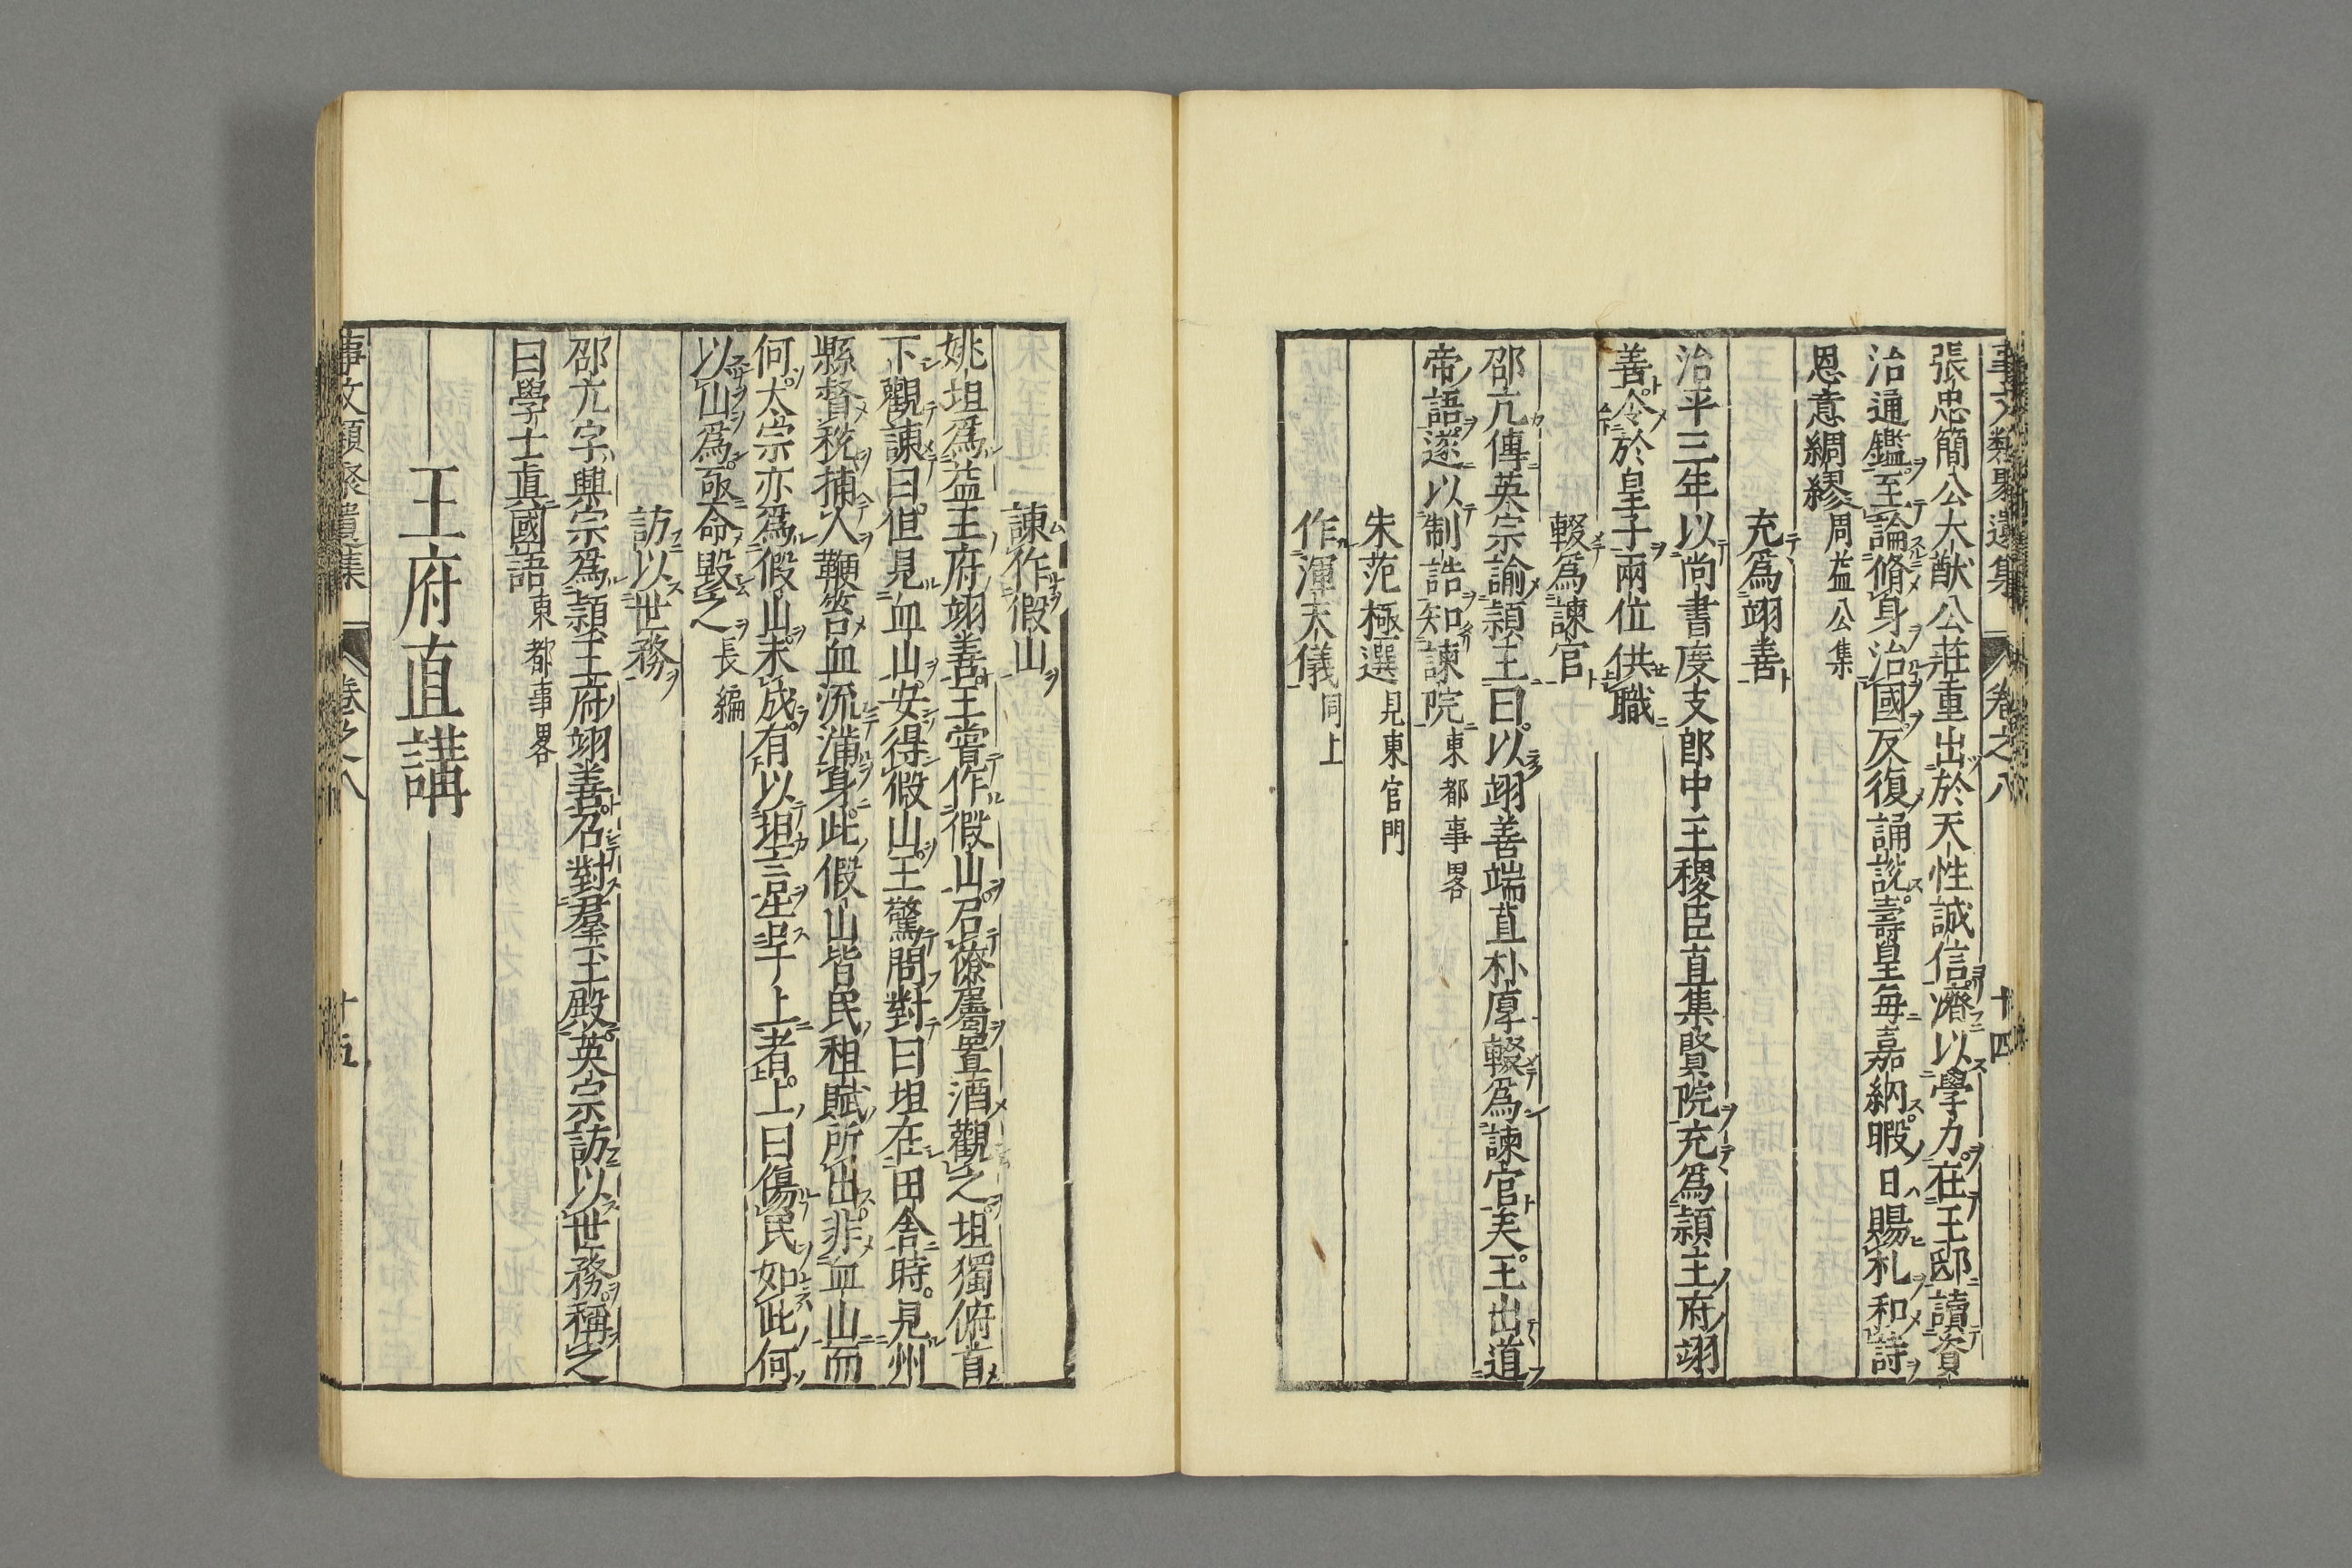 事文類聚遺集　卷之八　十四
張忠簡公大猷公莊重出於天性誠信濟以學力在王邸讀資
治通鑑至論脩身治國反復誦說壽皇每嘉納暇日賜札和詩
恩意綢繆周益公集
充爲翊善
治平三年以尚書度支郎中王稷臣直集賢院充爲頴王府翊
善令於皇子兩位供職
輟爲諫官
邵亢傳英宗諭頴王曰以翊善端直朴厚輟爲諫官矣王出道
帝語遂以制誥知諫院東都事畧
朱范極選見東官門
作渾天儀同上
諫作假山
姚坦爲益王府翊善王嘗作假山召僚屬置酒觀之坦獨俯首
下觀諫曰但見血山安得假山王驚問對曰坦在田舍時見州
縣督稅捕人鞭笞血流滿身此假山皆民租賦所出非血山而
何太宗亦爲假山未成有以坦言告于上者上曰傷民如此何
以山爲亟命毀之長編
訪以世務
邵亢字興宗爲頴王府翊善召對羣玉殿英宗訪以世務稱之
曰學士眞國語東都事畧
王府直講
事文類聚遺集　卷之八　十五